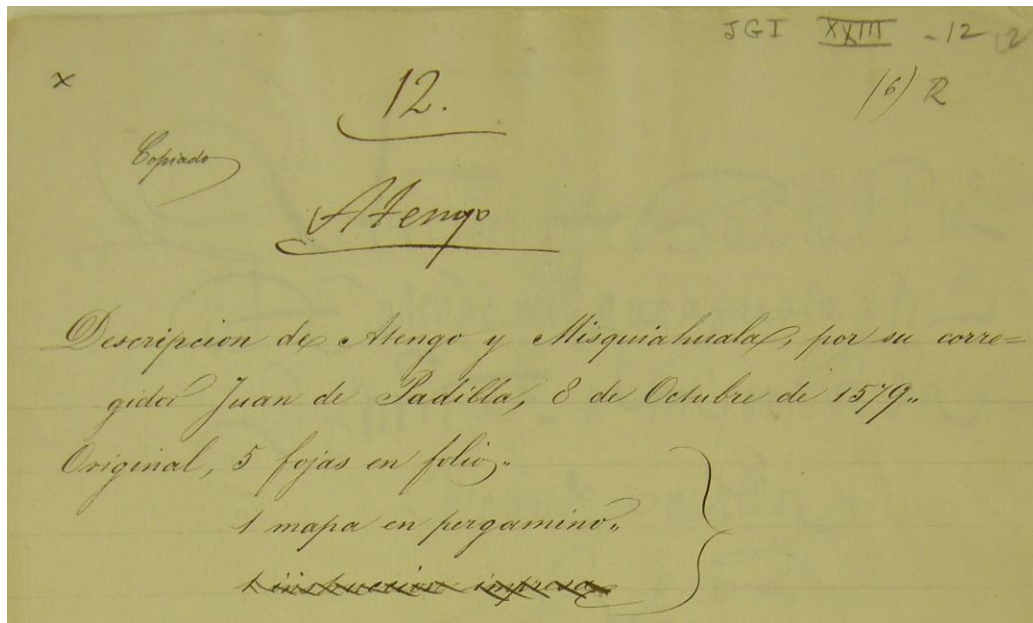 JGI XXIII -12
x
12.
(6) R
Copiado
Atengo
Descripcion de Atengo y Misquiahuala, por su corre=
gidor Juan de Padilla, 8 de Octubre de 1579„
Original, 5 fojas en folio„
1 mapa en pergamino„
1 instruccion impresa